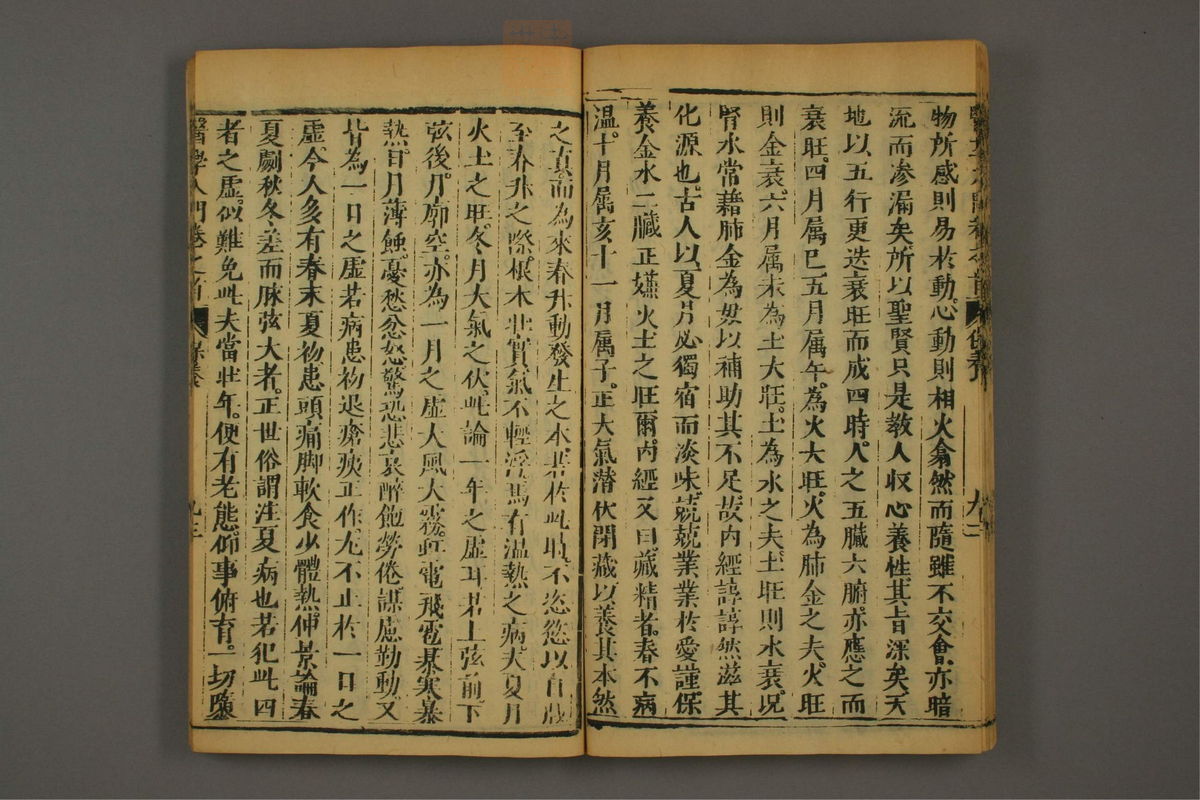 醫學入門卷之首 保養 九二
物所感則易於動心動則相火翕然而隨雖不交會亦暗
流而滲漏矣所以聖賢只是教人収心養性其旨深矣天
地以五行更迭衰旺而成四時人之五臟六腑亦應之而
衰旺四月属巳五月属午為火大旺火為肺金之夫火旺
則金衰六月属未為土大旺土為水之夫土旺則水衰况
腎水常藉肺金為母以補助其不足故内經諄諄然滋其
化源也古人以夏月必獨宿而淡味兢兢業業於愛謹保
養金水二臟正嫌火土之旺爾内經又曰藏精者春不病
温十月属亥十一月属子正大氣潛伏閉藏以養其本然
之真而為來春升動發生之本若於此時不恣慾以自戕
至春升之際根本壯實氣不輕浮焉有温熱之病夫夏月
火土之旺冬月大氣之伏此論一年之虛耳若上弦前下
弦後月廓空亦為一月之虛大風大霧虹電飛雹暴寒暴
熱日月薄蝕憂愁忿怒驚恐悲哀醉飽勞倦謀慮勤動又
皆為一日之虛若病患初退瘡痍正作尤不止於一日之
虛今人多有春末夏初患頭痛脚軟食少體熱仲景論春
夏劇秋冬差而脉弦大者正世俗謂注夏病也若犯此四
者之虛似難免此夫當壯年便有老態仰事俯育一切隳
醫學入門卷之首 保養 九三